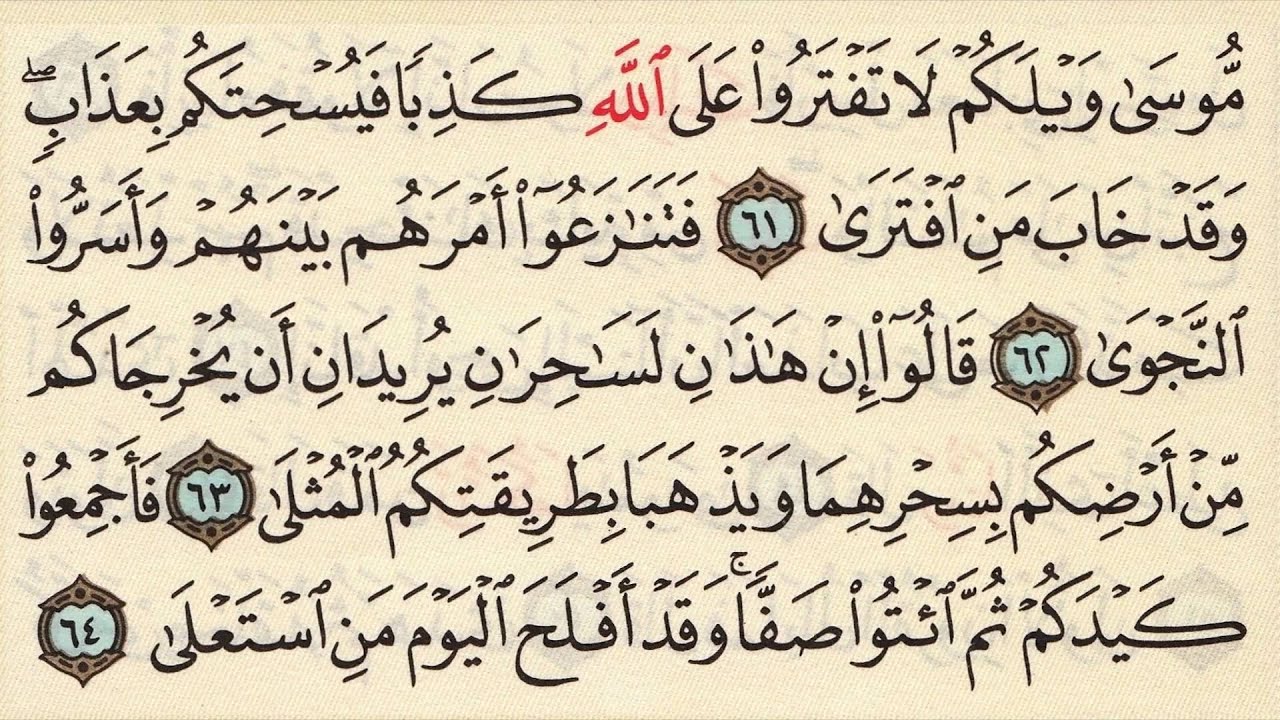 مُّوسَىٰ وَيْلَكُمْ لَا تَفْتَرُوا۟ عَلَى ٱللَّهِ كَذِبًا فَيُسْحِتَكُم بِعَذَابٍ ۖ
وَقَدْ خَابَ مَنِ ٱفْتَرَىٰ ٦١ فَتَنَـٰزَعُوٓا۟ أَمْرَهُم بَيْنَهُمْ وَأَسَرُّوا۟
ٱلنَّجْوَىٰ ٦٢ قَالُوٓا۟ إِنْ هَـٰذَٰنِ لَسَـٰحِرَٰنِ يُرِيدَانِ أَن يُخْرِجَاكُم
مِّنْ أَرْضِكُم بِسِحْرِهِمَا وَيَذْهَبَا بِطَرِيقَتِكُمُ ٱلْمُثْلَىٰ ٦٣ فَأَجْمِعُوا۟
كَيْدَكُمْ ثُمَّ ٱئْتُوا۟ صَفًّا ۚ وَقَدْ أَفْلَحَ ٱلْيَوْمَ مَنِ ٱسْتَعْلَىٰ ٦٤